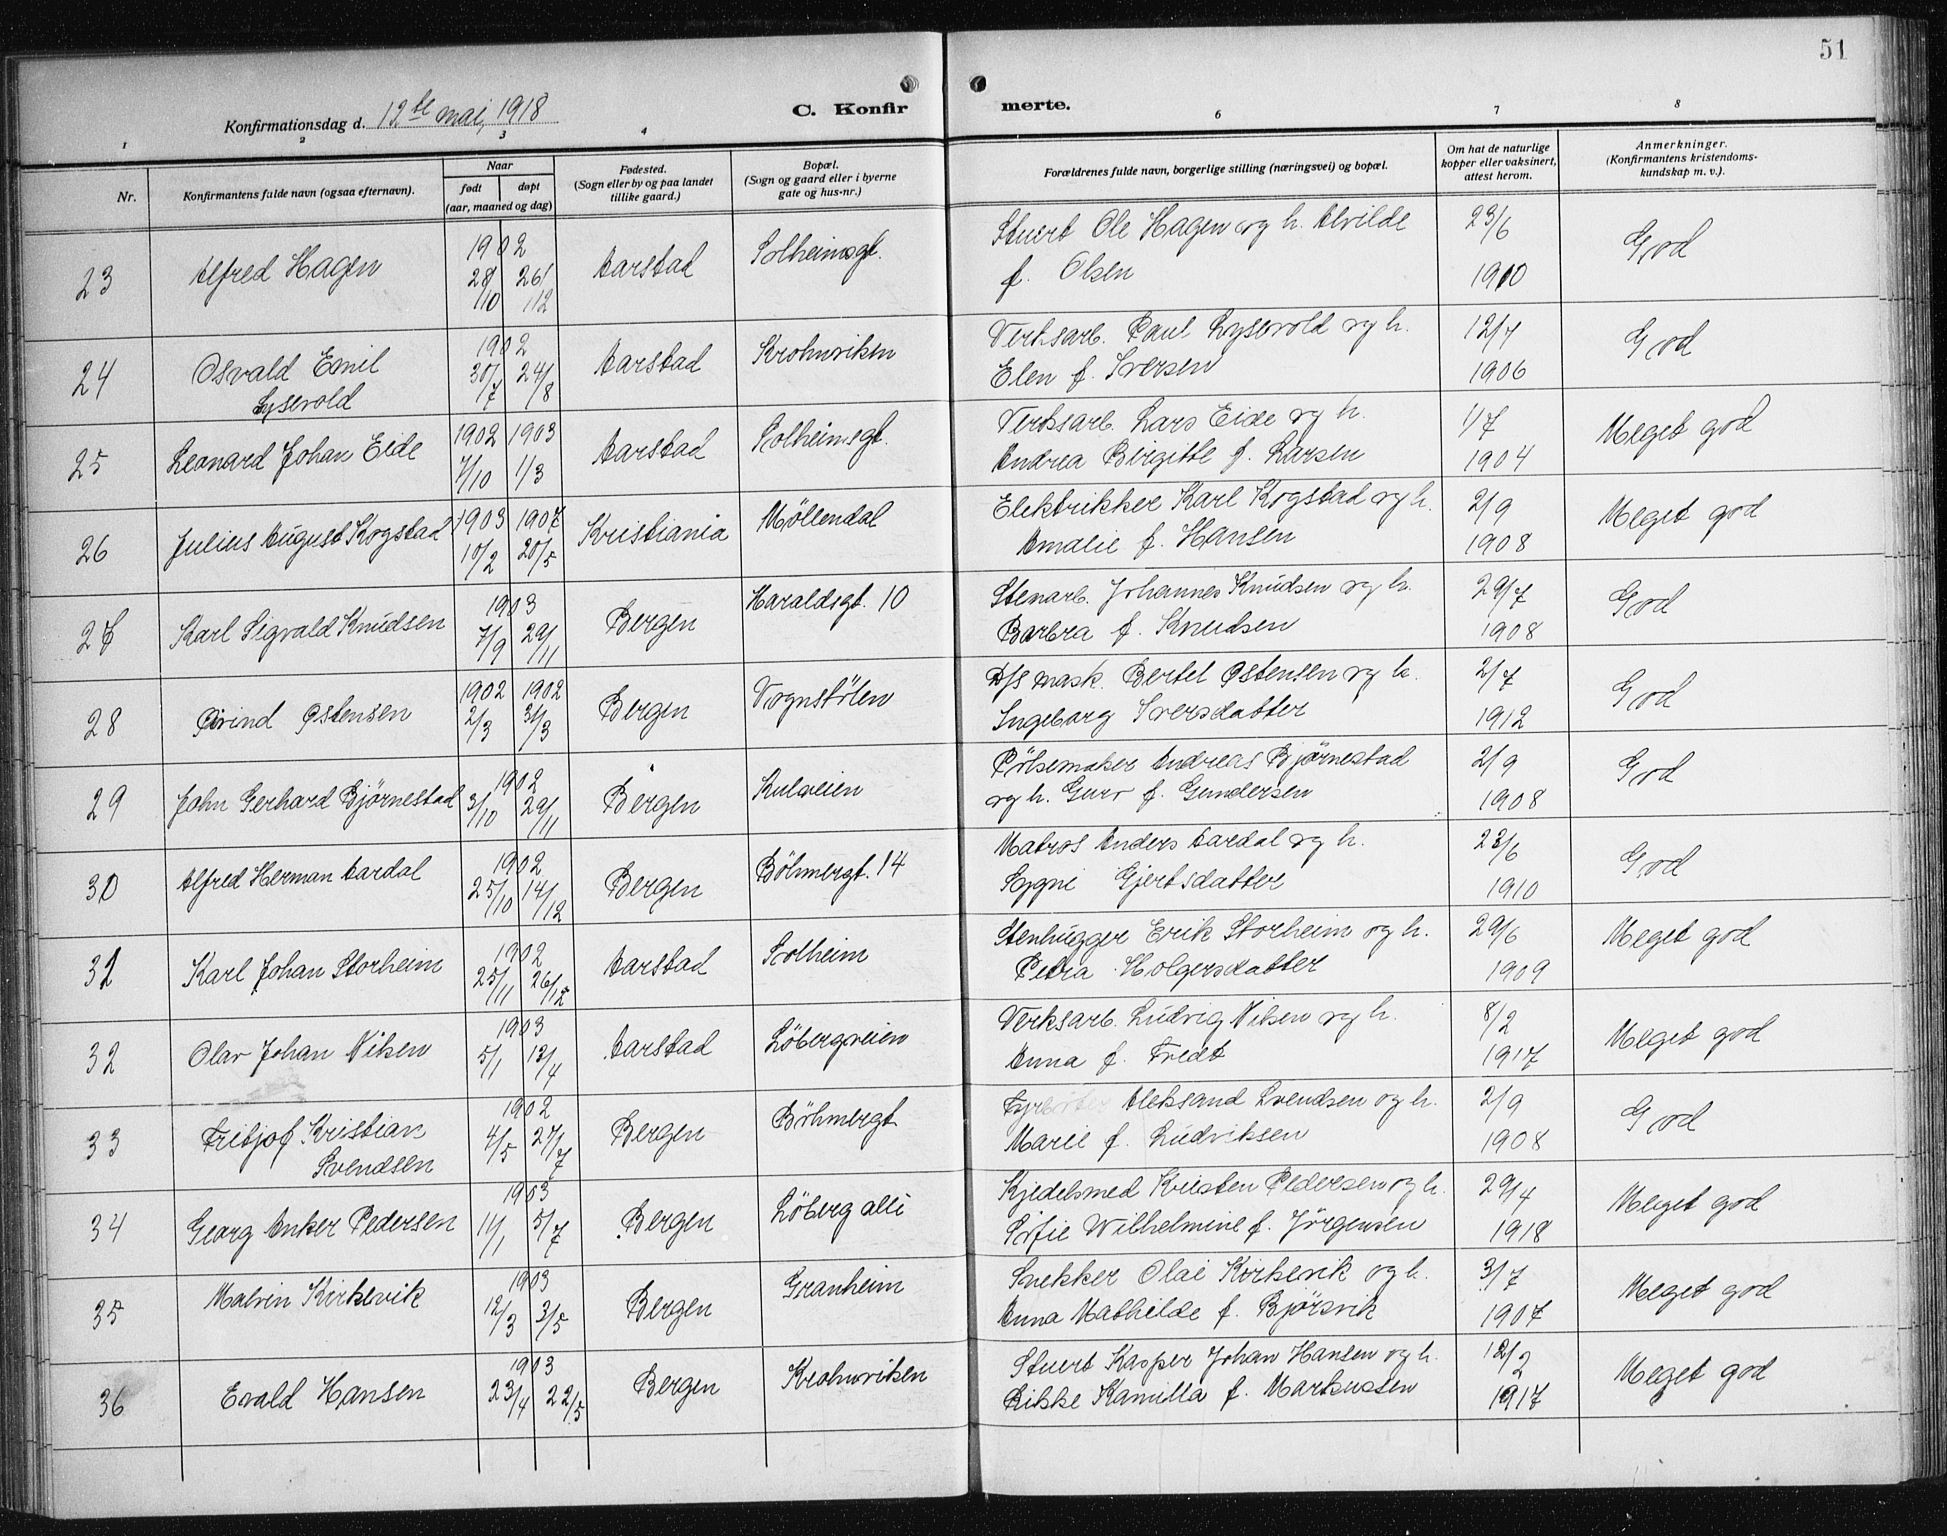 51
Konfirmationsdag d. 12te mai, 1918
C. Konfirmerte.
1 2 3 4 6 7 8
Nr.
Konfirmantens fulde navn (ogsaa efternavn).
Naar
født døpt
(aar, maaned og dag)
Fødested.
(Sogn eller by og paa landet
tillike gaard.)
Bopæl.
(Sogn og gaard eller i byerne
gate og hus-nr.)
Forældrenes fulde navn, borgerlige stilling (næringsvei) og bopæl.
Om hat de naturlige
kopper eller vaksinert,
attest herom.
Anmerkninger.
(Konfirmantens kristendoms-
kundskap m. v.).
23 Alfred Hagen 1902 28/10 26/12 Aarstad Solheimsgt. Stuert Ole Hagen og h. Alvilde 23/6 God
f. Olsen 1910
24 Osvald Emil 1902 30/7 24/8 Aarstad Krohnviken Verksarb. Paul Lysevold og h. 12/7 God
Lysevold Elen f. Iversen 1906
25 Leonard Johan Eide 1902 7/10 1903 1/3 Aarstad Solheimsgt. Verksarb. Lars Eide og h. 1/7 Meget god
Andrea Birgitte f. Larsen 1904
26 Julius August Kogstad 1903 10/2 1907 20/5 Kristiania Møllendal Elektrikker Karl Kogstad og h. 2/9 Meget god
Amalie f. Hansen 1908
27 Karl Sigvald Knudsen 1903 7/9 29/11 Bergen Haraldsgt. 10 Stenarb. Johannes Knudsen og h. 29/7 God
Barbra f. Knudsen 1908
28 Øivind Østensen 1902 2/3 1902 31/3 Bergen Vognstølen D/S mask. Bertel Østensen og h. 2/7 God
Ingeborg Iversdatter 1912
29 John Gerhard Bjørnestad 1902 3/10 29/11 Bergen Kalveien Pølsemaker Andreas Bjørnestad 2/9 God
og h. Guro f. Gundersen 1908
30 Alfred Herman Aardal 1902 25/10 14/12 Bergen Bøhmergt. 14 Matros Anders Aardal og h. 23/6 God
Sygni Gjertsdatter 1910
31 Karl Johan Storheim 1902 25/11 26/12 Aarstad Solheim Stenhugger Erik Storheim og h. 29/6 Meget god
Petra Holgersdatter 1909
32 Olav Johan Nilsen 1903 5/1 12/4 Aarstad Løbergveien Verksarb. Ludvig Nilsen og h. 8/2 Meget god
Anna f. Tredt 1917
33 Fritjof Kristian 1902 4/5 27/7 Bergen Bøhmergt Fyrbøter Aleksand Svendsen og h. 2/9 God
Svendsen Marie f. Ludviksen 1908
34 Georg Anker Pedersen 1903 11/1 5/7 Bergen Løberg alle Kjedelsmed Kristen Pedersen og h. 29/4 Meget god
Sofie Wilhelmine f. Jørgensen 1918
35 Malvin Kirkevik 1903 12/3 3/5 Bergen Granheim Snekker Olai Kirkevik og h. 3/7 Meget god
Anna Mathilde f. Bjørsvik 1907
36 Evald Hansen 1903 23/4 22/5 Bergen Krohnviken Stuert Kasper Johan Hansen og h. 12/2 Meget god
Rikke Kamilla f. Markussen 1917